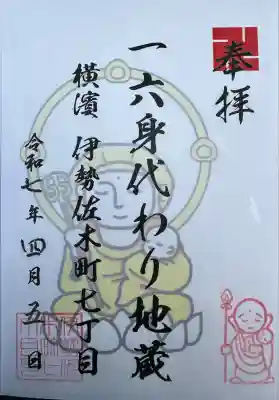 奉拝
一六身代わり地蔵
横濱 伊勢佐木町七丁目
令和七年四月五日